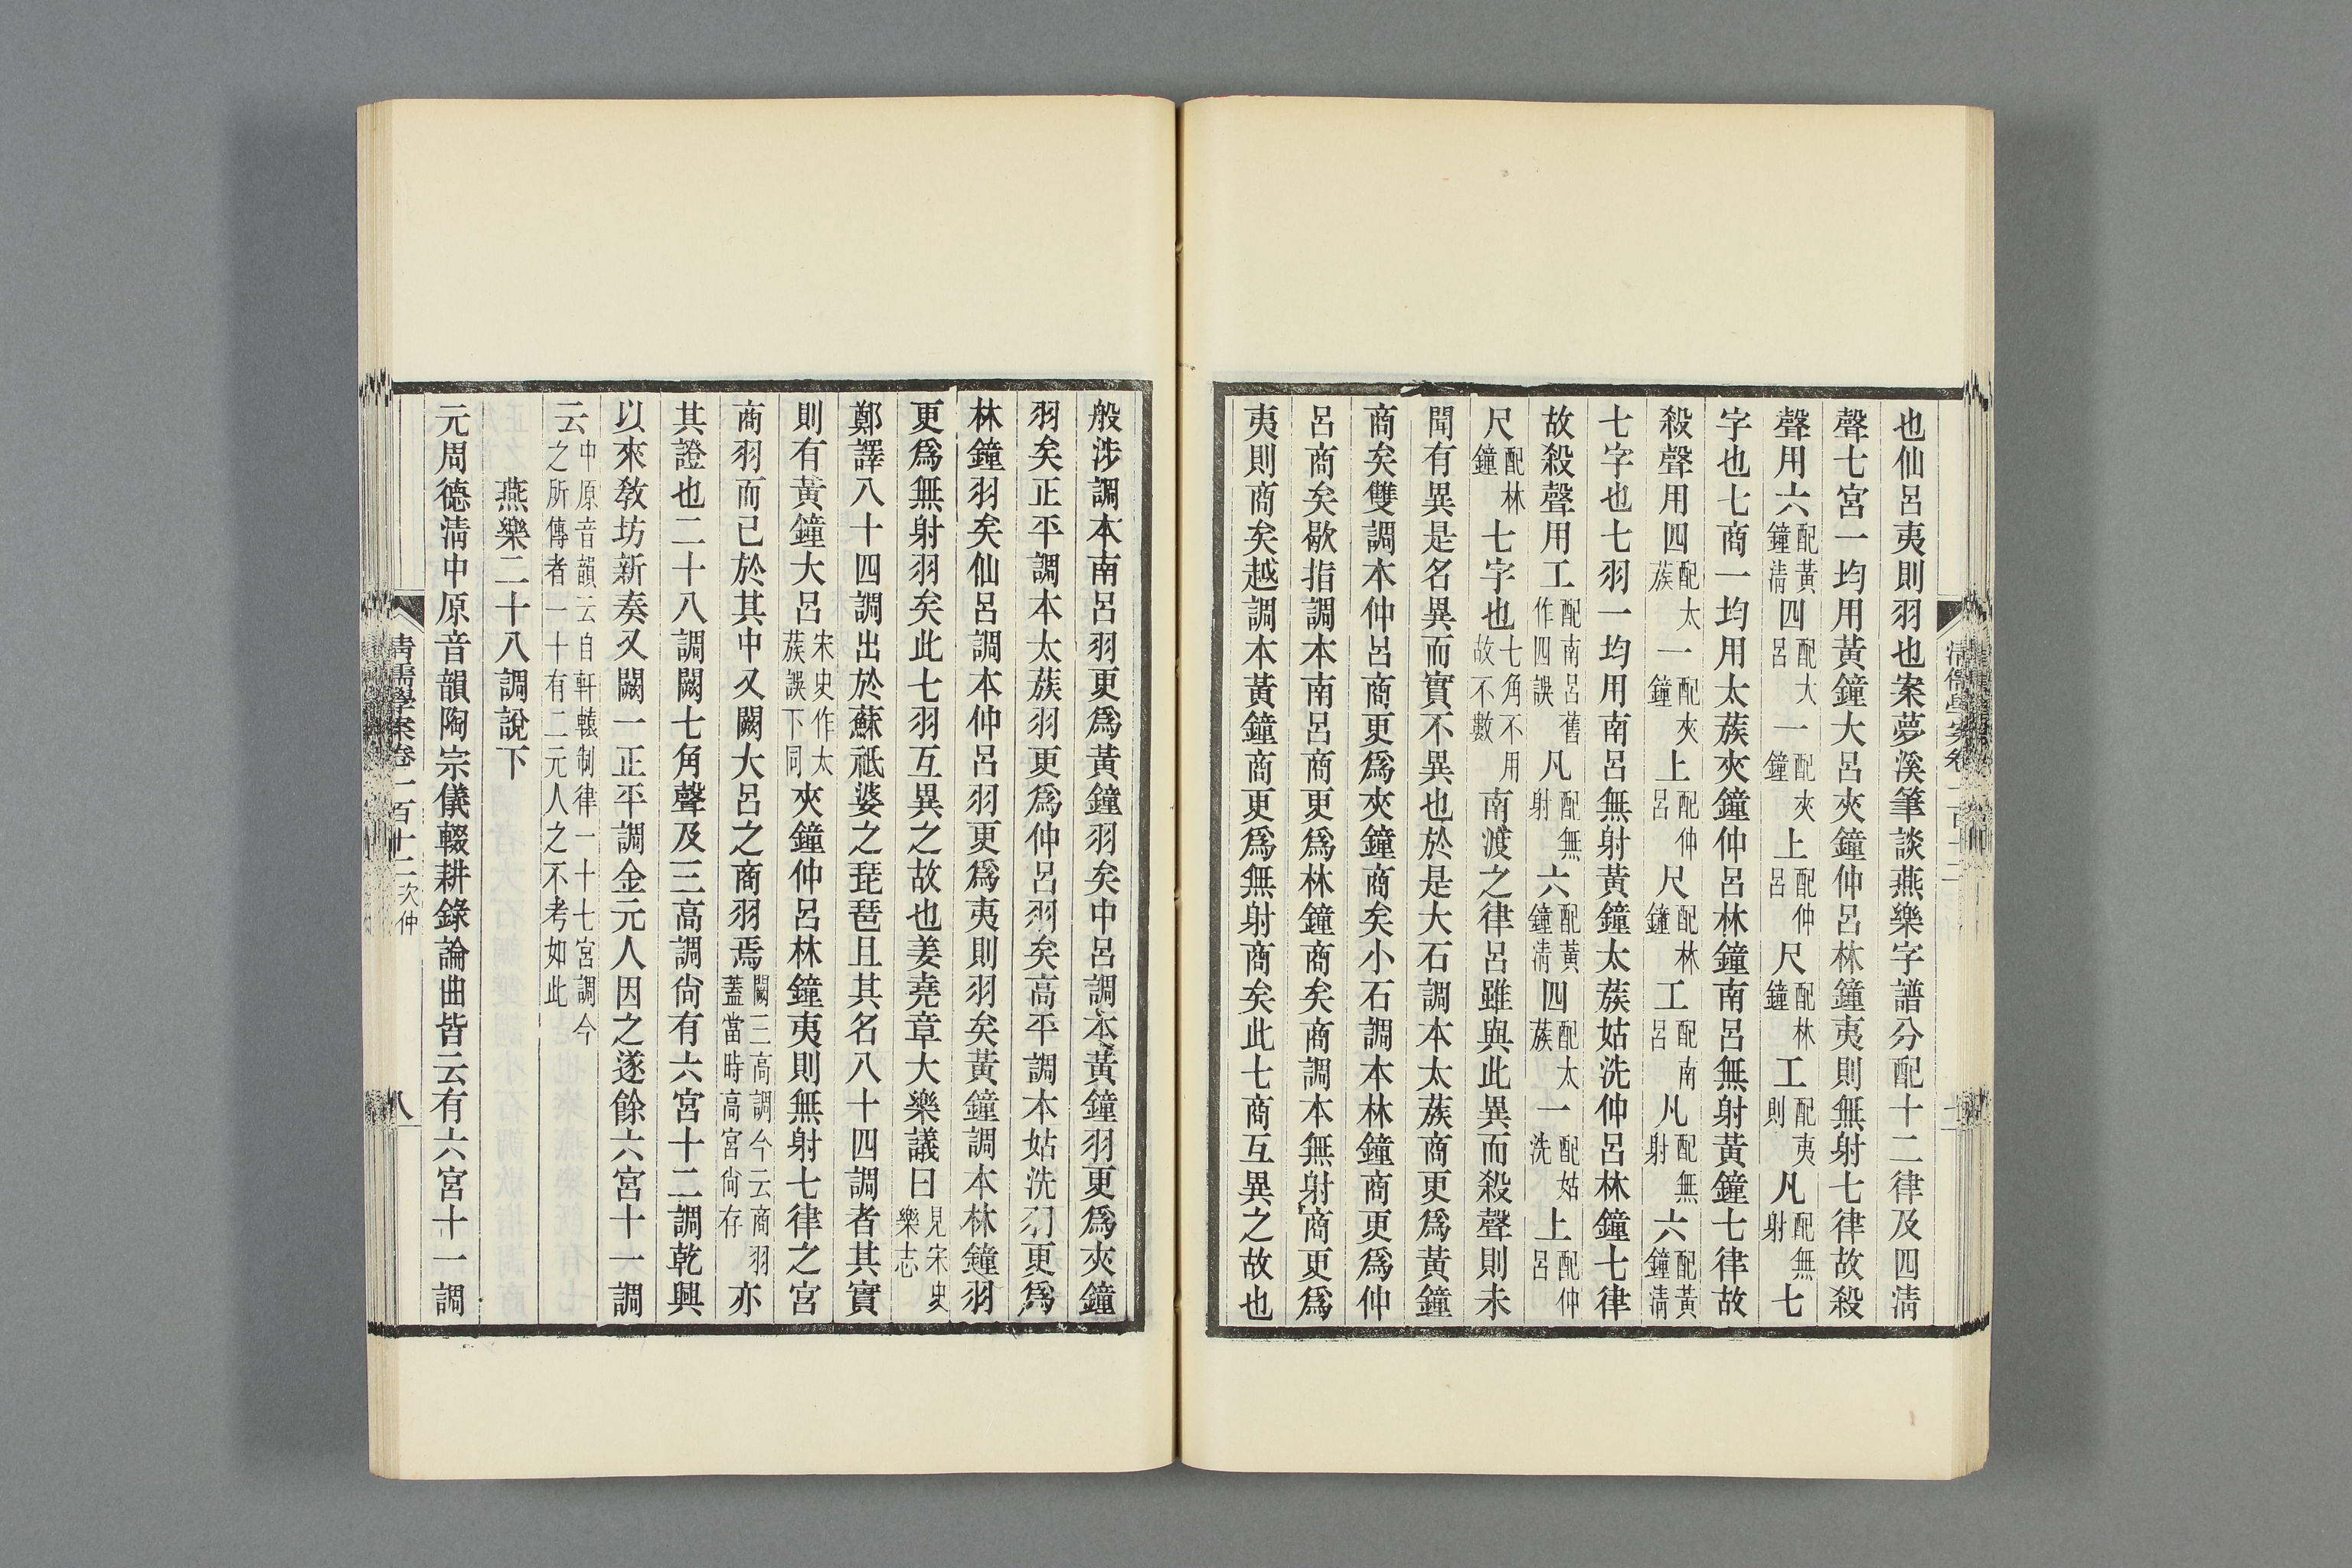 也仙呂夷則羽也案夢溪筆談燕樂字譜分配十二律及四淸
聲七宮一均用黃鐘大呂夾鐘仲呂林鐘夷則無射七律故殺
聲用六配黃鐘淸四配大呂一配夾鐘上配仲呂尺配林鐘工配夷則凡配無射七
字也七商一均用太蔟夾鐘仲呂林鐘南呂無射黃鐘七律故
殺聲用四配太蔟一配夾鐘上配仲呂尺配林鐘工配南呂凡配無射六配黃鐘淸
七字也七羽一均用南呂無射黃鐘太蔟姑洗仲呂林鐘七律
故殺聲用工配南呂舊作四誤凡配無射六配黃鐘淸四配太蔟一配姑洗上配仲呂
尺配林鐘七字也七角不用故不數南渡之律呂雖與此異而殺聲則未
聞有異是名異而實不異也於是大石調本太蔟商更爲黃鐘
商矣雙調本仲呂商更爲夾鐘商矣小石調本林鐘商更爲仲
呂商矣歇指調本南呂商更爲林鐘商矣商調本無射商更爲
夷則商矣越調本黃鐘商更爲無射商矣此七商互異之故也
般涉調本南呂羽更爲黃鐘羽矣中呂調本黃鐘羽更爲夾鐘
羽矣正平調本太蔟羽更爲仲呂羽矣高平調本姑洗羽更爲
林鐘羽矣仙呂調本仲呂羽更爲夷則羽矣黃鐘調本林鐘羽
更爲無射羽矣此七羽互異之故也姜堯章大樂議曰見宋史樂志
鄭譯八十四調出於蘇祗婆之琵琶且其名八十四調者其實
則有黃鐘大呂宋史作太蔟誤下同夾鐘仲呂林鐘夷則無射七律之宮
商羽而已於其中又闕大呂之商羽焉闕三高調今云商羽蓋當時高宮尙存亦
其證也二十八調闕七角聲及三高調尙有六宮十二調乾興
以來敎坊新奏又闕一正平調金元人因之遂餘六宮十一調
云中原音韻云自軒轅制律一十七宮調今之所傳者一十有二元人之不考如此
燕樂二十八調說下
元周德淸中原音韻陶宗儀輟耕錄論曲皆云有六宮十一調
淸儒學案卷一百十二 次仲
八